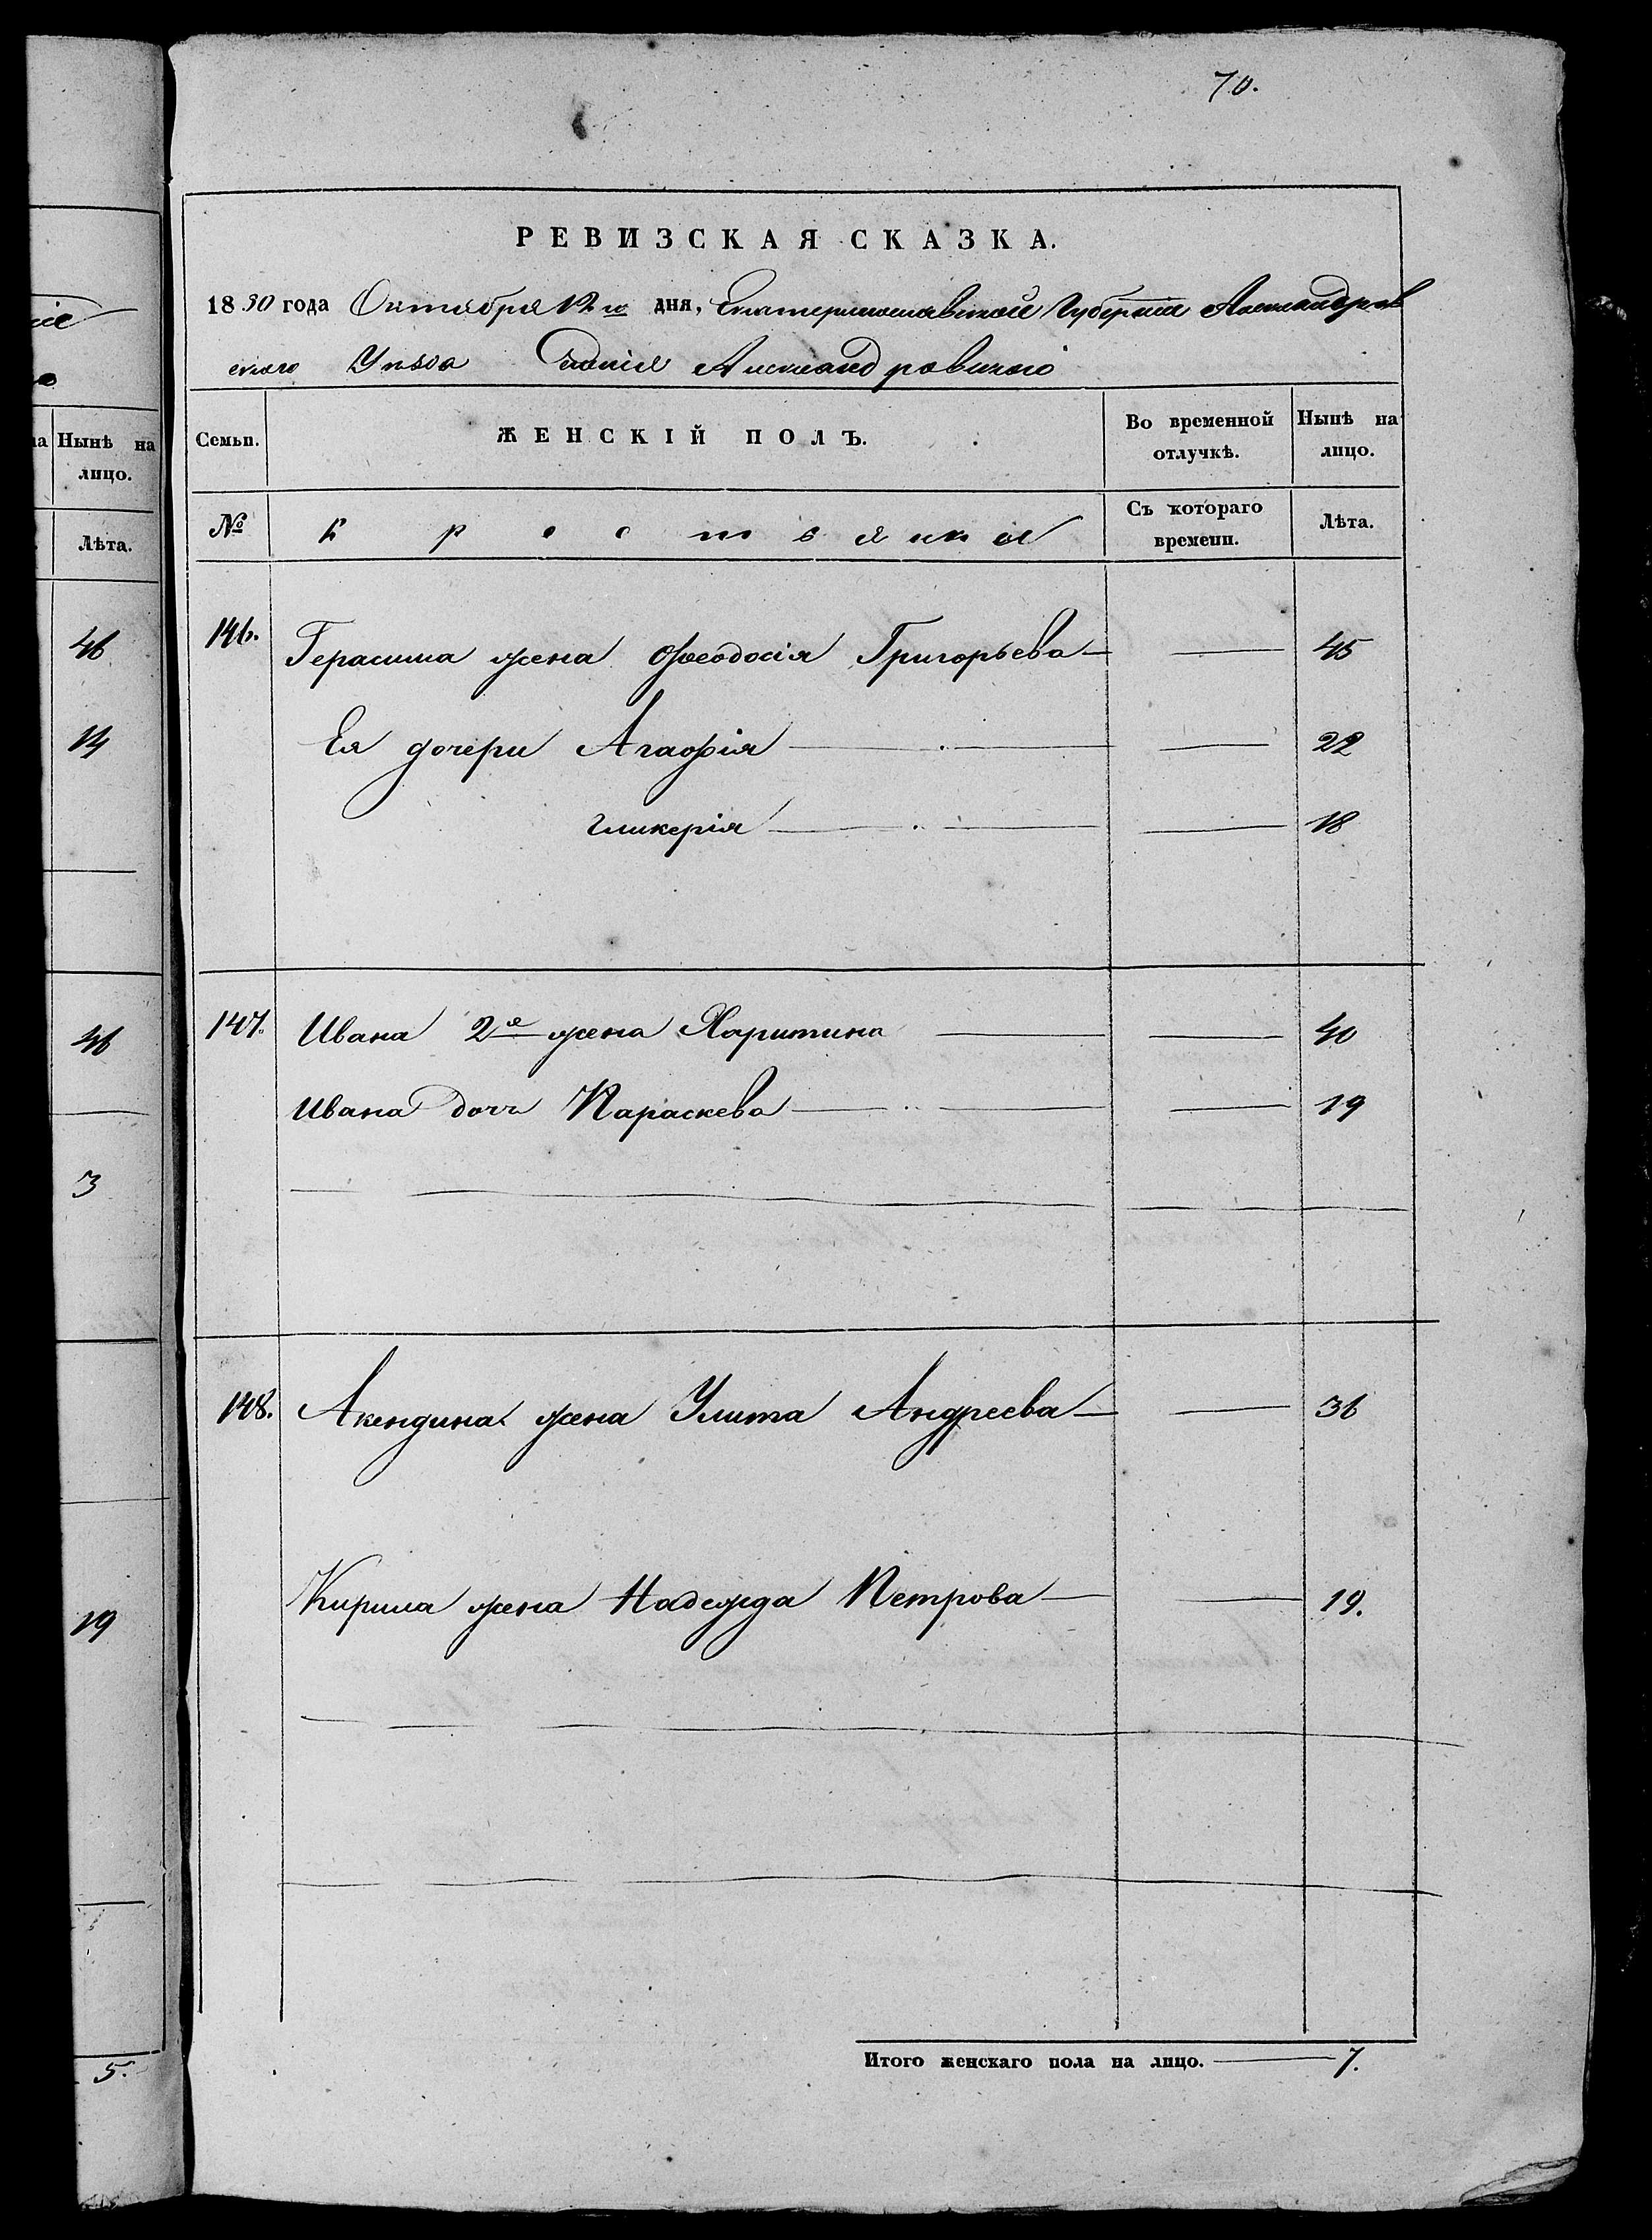 70.
Нынѣ на
лицо.
Лѣта.
46
14
46
3
19
5.
РЕВИЗСКАЯ СКАЗКА.
1850 года Октября 12 го дня, Екатеринославской Губерніи Александров
скаго Уѣзда Александровскаго
Семьи. ЖЕНСКІЙ ПОЛЪ. Во временной отлучкѣ. Нынѣ на лицо.
№ Крестьянки Съ котораго времени. Лѣта.
146. Герасима жена Феодосія Григорьева — — 45
Ея дочери Агафія — — 22
Гликерія — — 18
147. Ивана 2я жена Харитина — — 40
Ивана дочь Параскева — — 19
148. Акендина жена Улита Андреева — — 36
Кирила жена Надежда Петрова — — 19.
Итого женскаго пола на лицо. — 7.